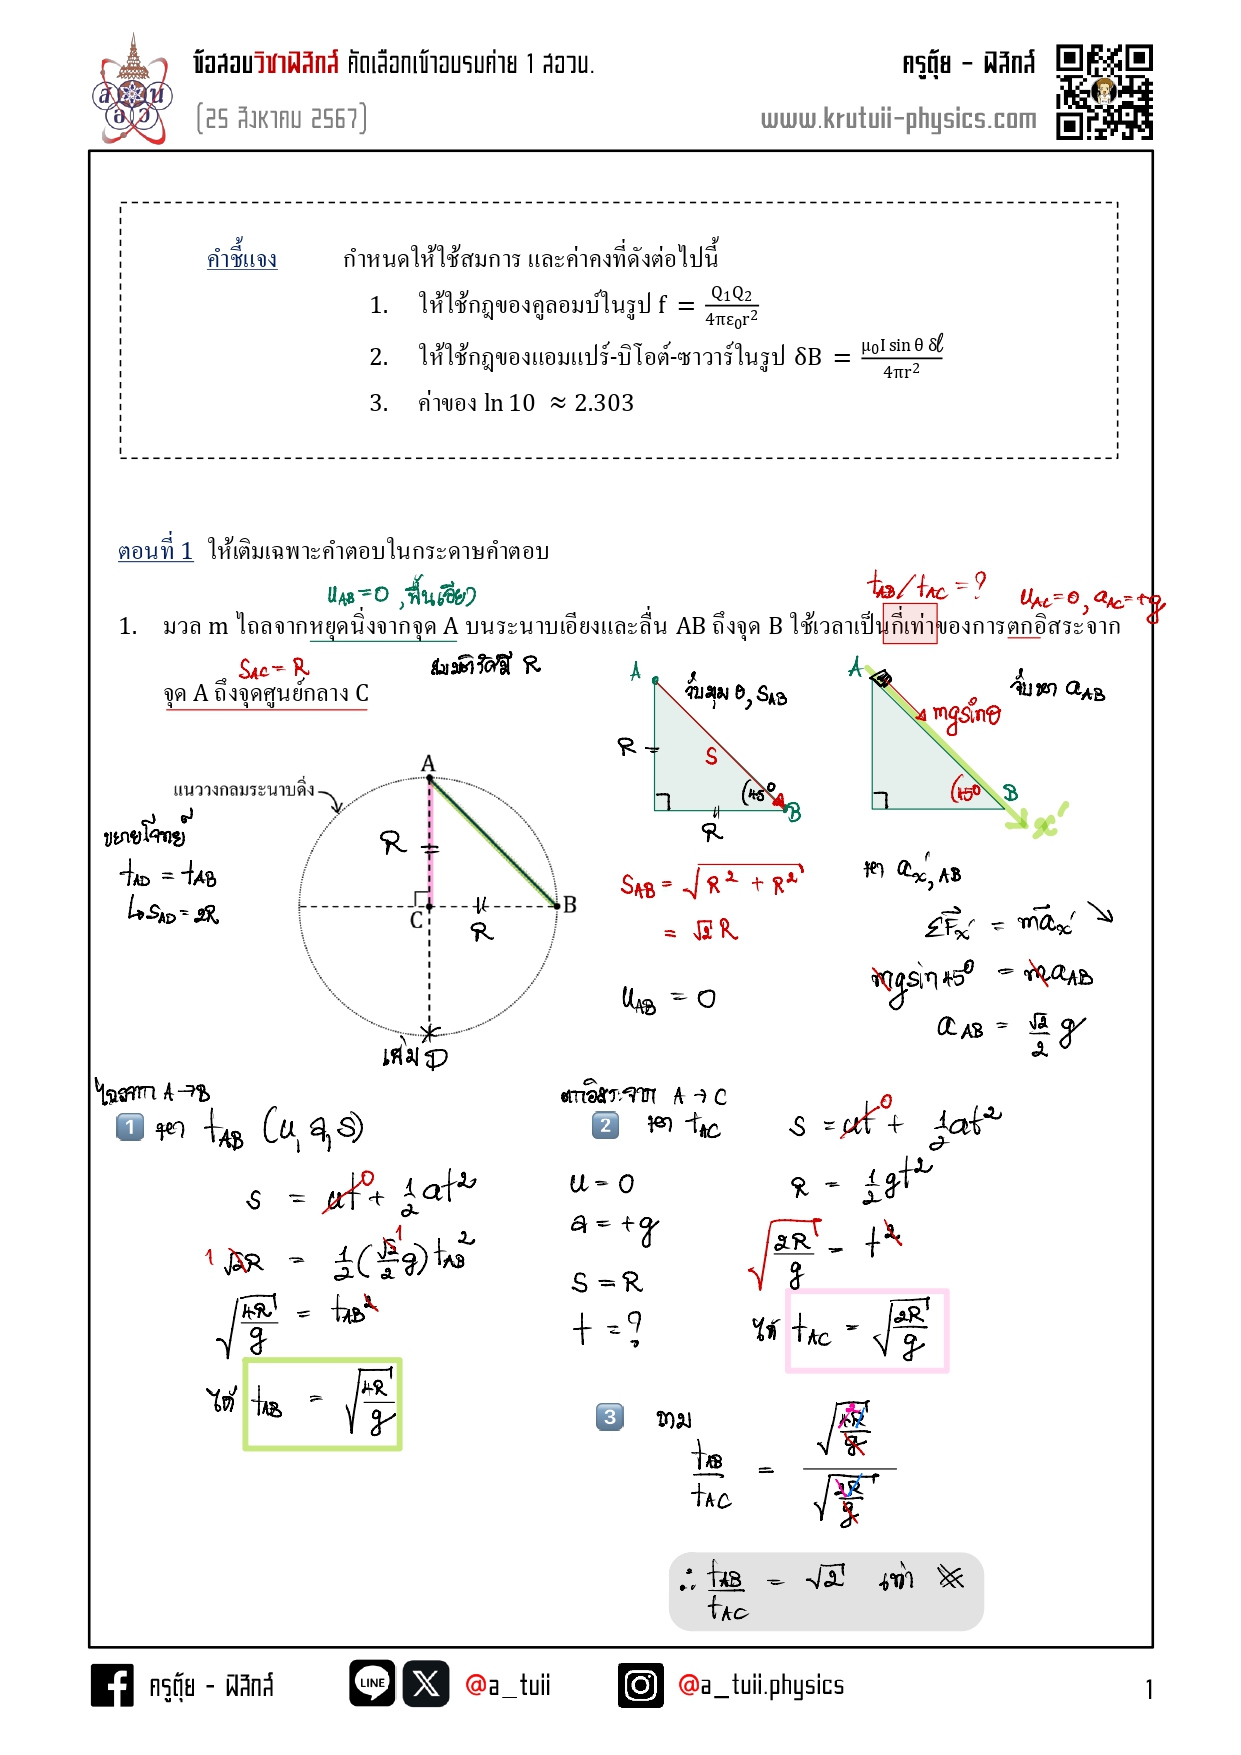 ข้อสอบวิชาฟิสิกส์ คัดเลือกเข้าอบรมค่าย 1 สอวน.
(25 สิงหาคม 2567)
ครูตุ้ย - ฟิสิกส์
www.krutuii-physics.com
ส อ ว น
คำชี้แจง กำหนดให้ใช้สมการ และค่าคงที่ดังต่อไปนี้
1. ให้ใช้กฎของคูลอมบ์ในรูป f = Q₁Q₂/4πε₀r²
2. ให้ใช้กฎของแอมแปร์-บิโอต์-ซาวาร์ในรูป δB = μ₀I sin θ δℓ/4πr²
3. ค่าของ ln 10 ≈ 2.303
ตอนที่ 1 ให้เติมเฉพาะคำตอบในกระดาษคำตอบ
u_AB = 0, พื้นเอียง
t_AB / t_AC = ?
u_AC = 0, a_AC = +g
1. มวล m ไถลจากหยุดนิ่งจากจุด A บนระนาบเอียงและลื่น AB ถึงจุด B ใช้เวลาเป็นกี่เท่าของการตกอิสระจาก
S_AC = R
สมมติรัศมี R
จุด A ถึงจุดศูนย์กลาง C
แนววงกลมระนาบดิ่ง
A
R
C
R
B
เติม D
ขยายโจทย์
t_AD = t_AB
↳ S_AD = 2R
A
จับมุม θ, S_AB
R
S
45°
B
R
S_AB = √(R² + R²)
= √2 R
u_AB = 0
A
จับหา a_AB
mg sinθ
45°
B
x'
หา a_x', AB
ΣF_x' = ma_x' ↘
mg sin 45° = ma_AB
a_AB = √2/2 g
ไถลจาก A → B
1 หา t_AB (u, a, s)
s = ut⁰ + ½at²
1 √2R = ½(√2/2 g) t_AB²
√(4R/g) = t_AB²
ได้ t_AB = √(4R/g)
ตกอิสระจาก A → C
2 หา t_AC
u = 0
a = +g
S = R
t = ?
s = ut⁰ + ½at²
R = ½gt²
√(2R/g) = t²
ได้ t_AC = √(2R/g)
3 หาม
t_AB/t_AC = √(4R/g) / √(2R/g)
∴ t_AB/t_AC = √2 เท่า ※
ครูตุ้ย - ฟิสิกส์
LINE
X
@a_tuii
@a_tuii.physics
1